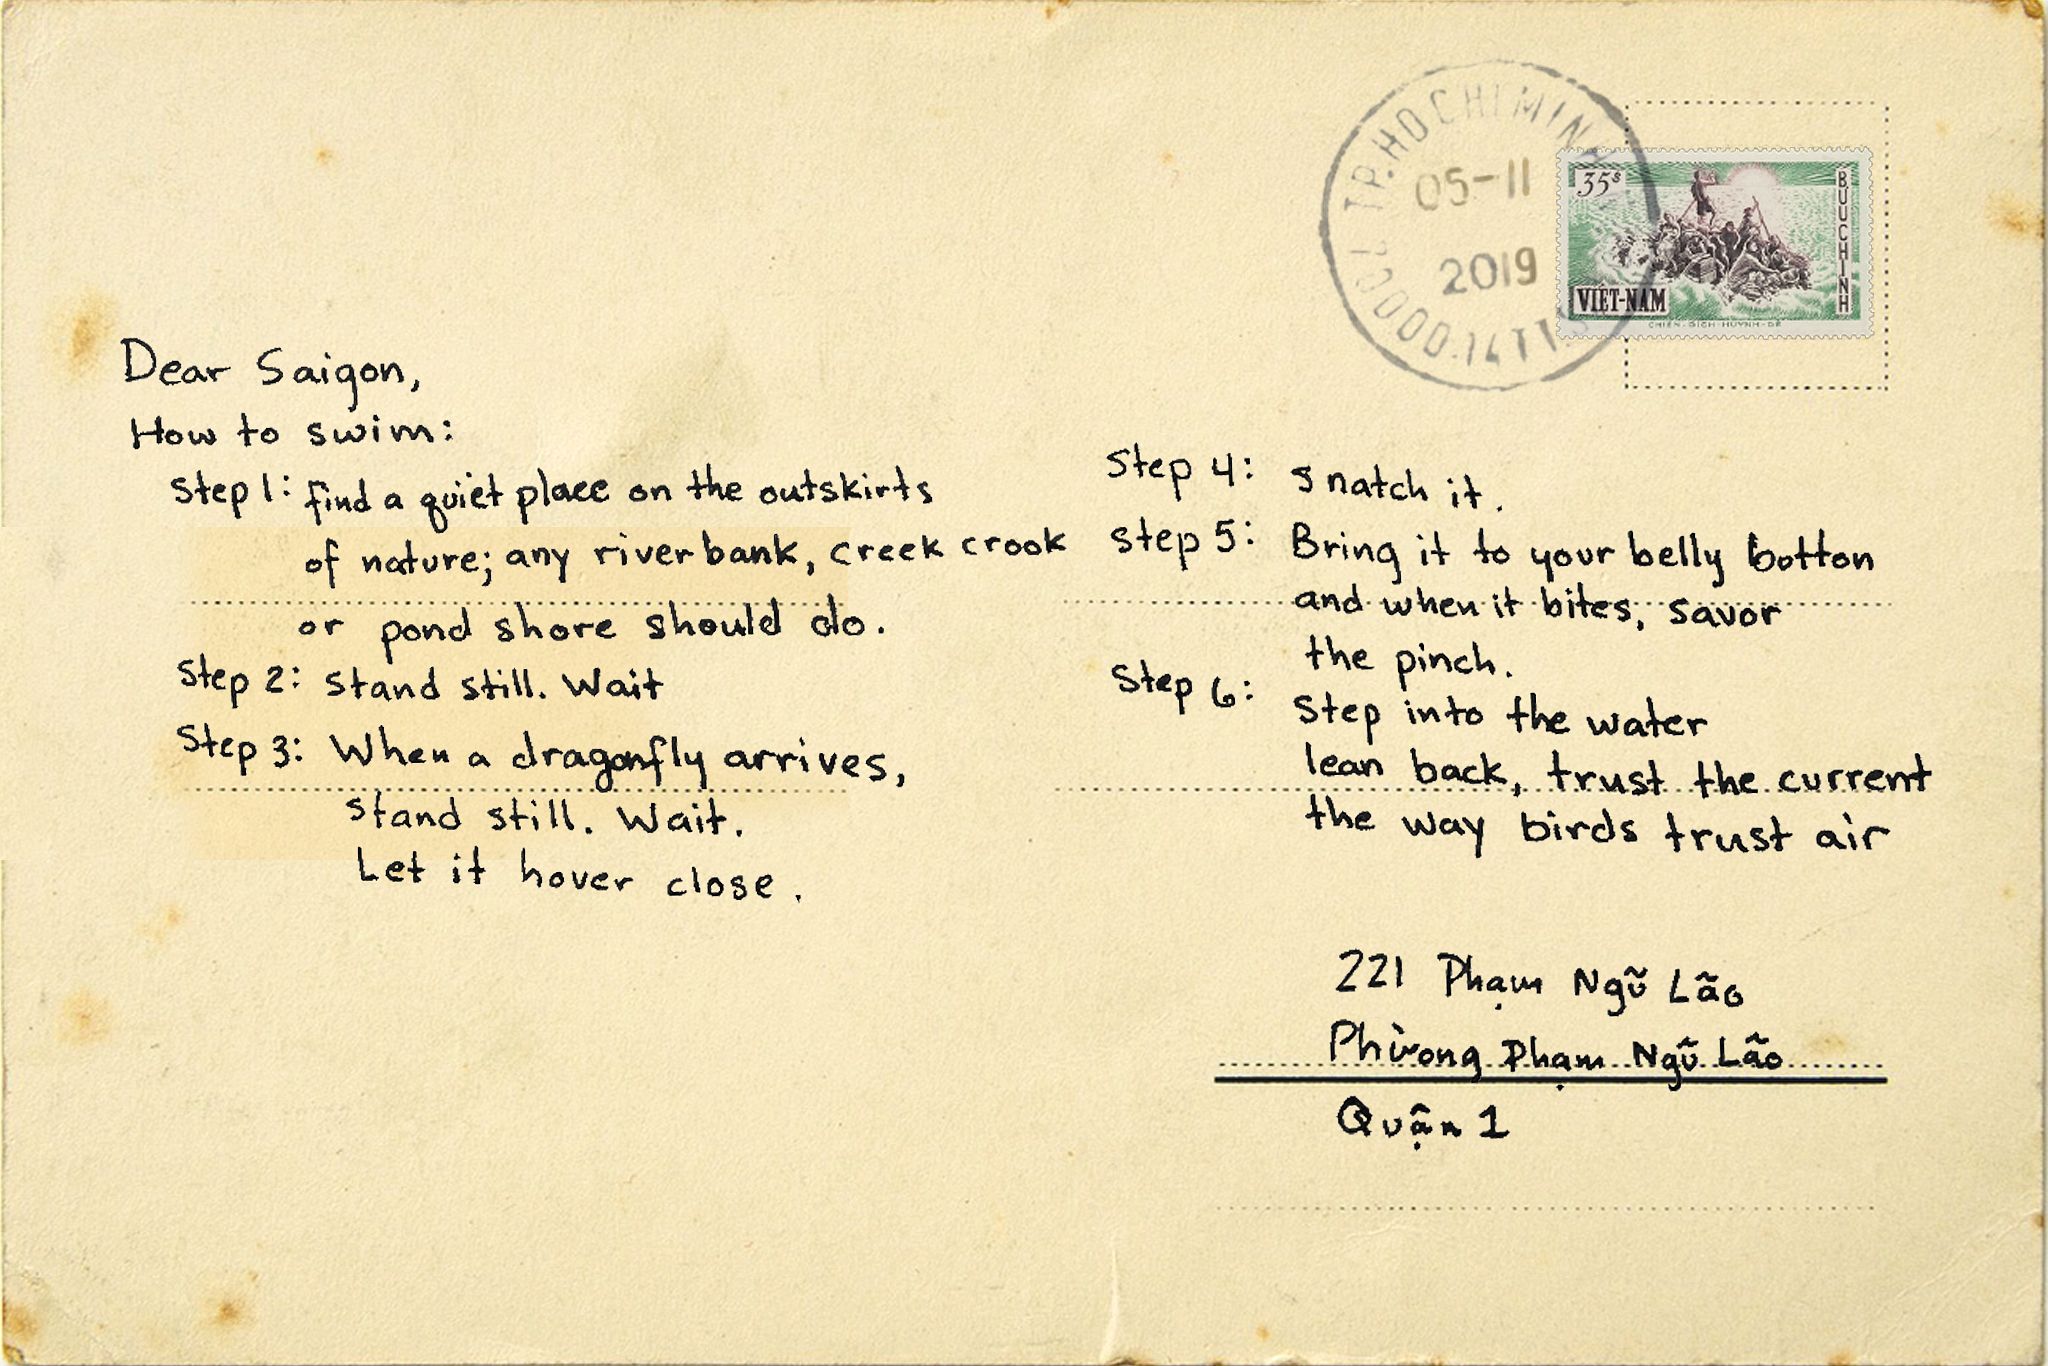 TP.HO CHI MINH
05-11
2019
35s
BUUCHINH
VIÊT-NAM
CHIẾN-DỊCH-HUỲNH-ĐỆ
Dear Saigon,
How to swim:
Step 1: find a quiet place on the outskirts
of nature; any river bank, creek crook
or pond shore should do.
Step 2: Stand still. Wait
Step 3: When a dragonfly arrives,
stand still. Wait.
Let it hover close.
Step 4: snatch it.
Step 5: Bring it to your belly botton
and when it bites, savor
the pinch.
Step 6: Step into the water
lean back, trust the current
the way birds trust air
221 Phạm Ngũ Lão
Phừong Phạm Ngũ Lão
Quận 1